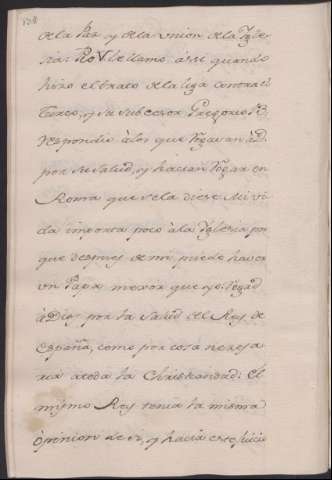 de la Paz, y de la Union de la Ygle-
sia: Pio V le llamo assi quando
hizo el trato de la liga contra el
Turco, y su subcesor Gregorio 13.
respondio à los que rogavan à D.
por su salud, y hacian rogar en
Roma que se la diese. Mi vi
da importa poco à la Yglesia por
que despues de mi puede haver
un Papa mexor que yo. Rogad
à Dios por la salud del Rey de
España, como por cosa necesa
ria atoda la Christiandad: El
mismo Rey tenia la misma
òpinion de si, y hacia este juicio